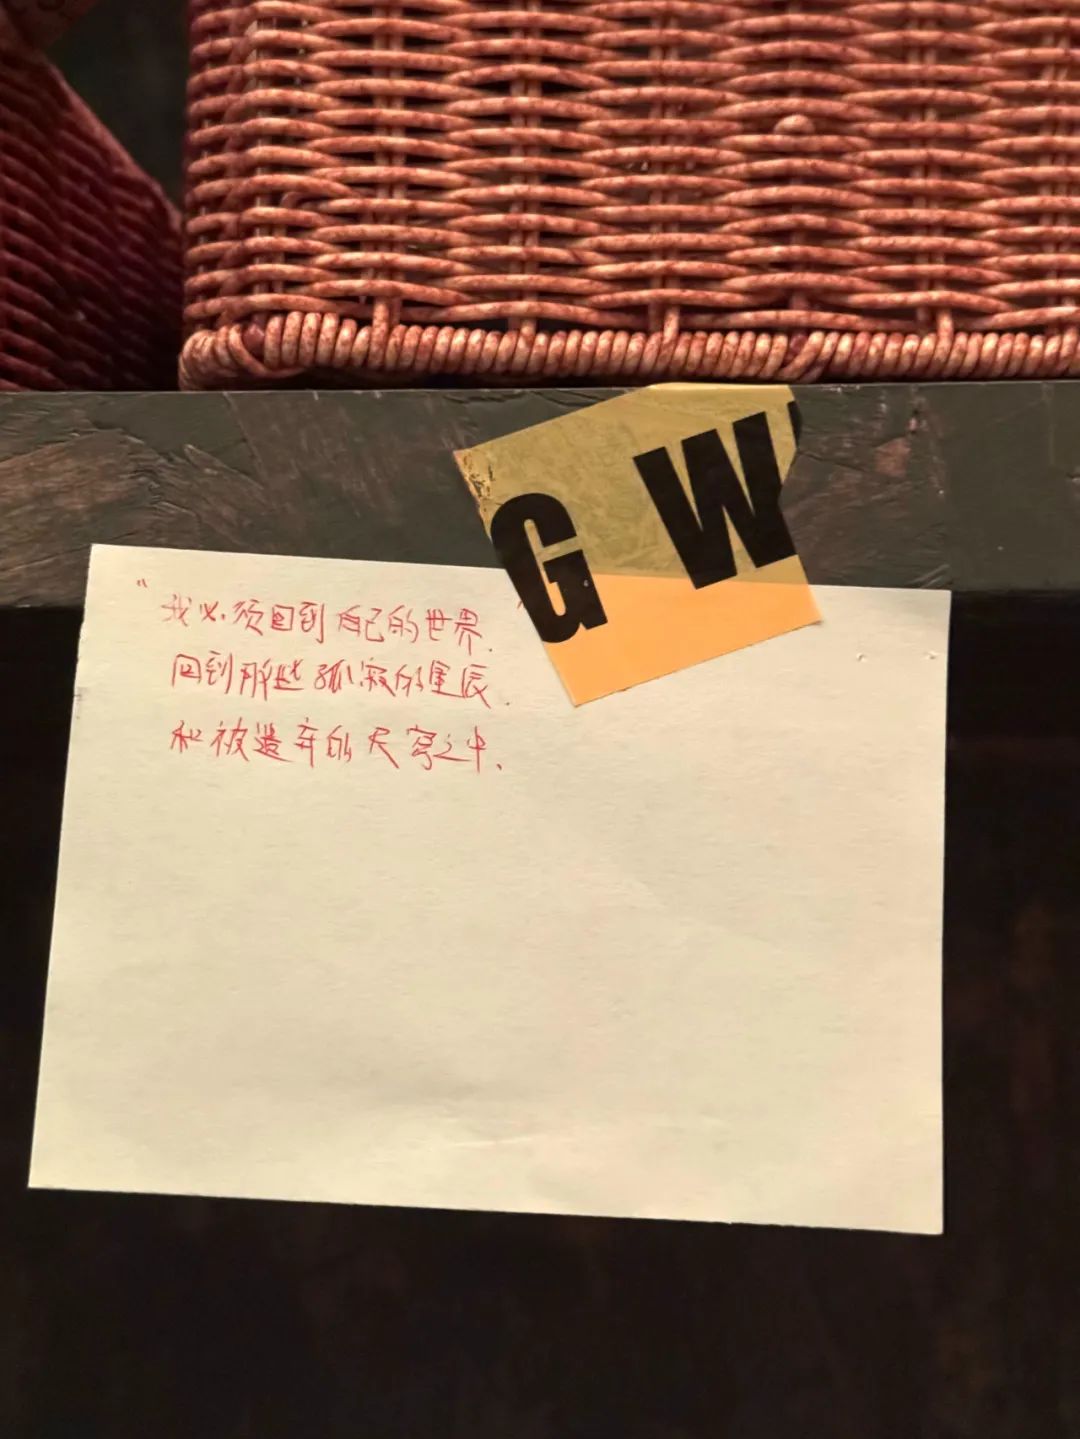 G W
“我必须回到自己的世界.”
回到那些孤寂的星辰.
和被遗弃的天穹之中.